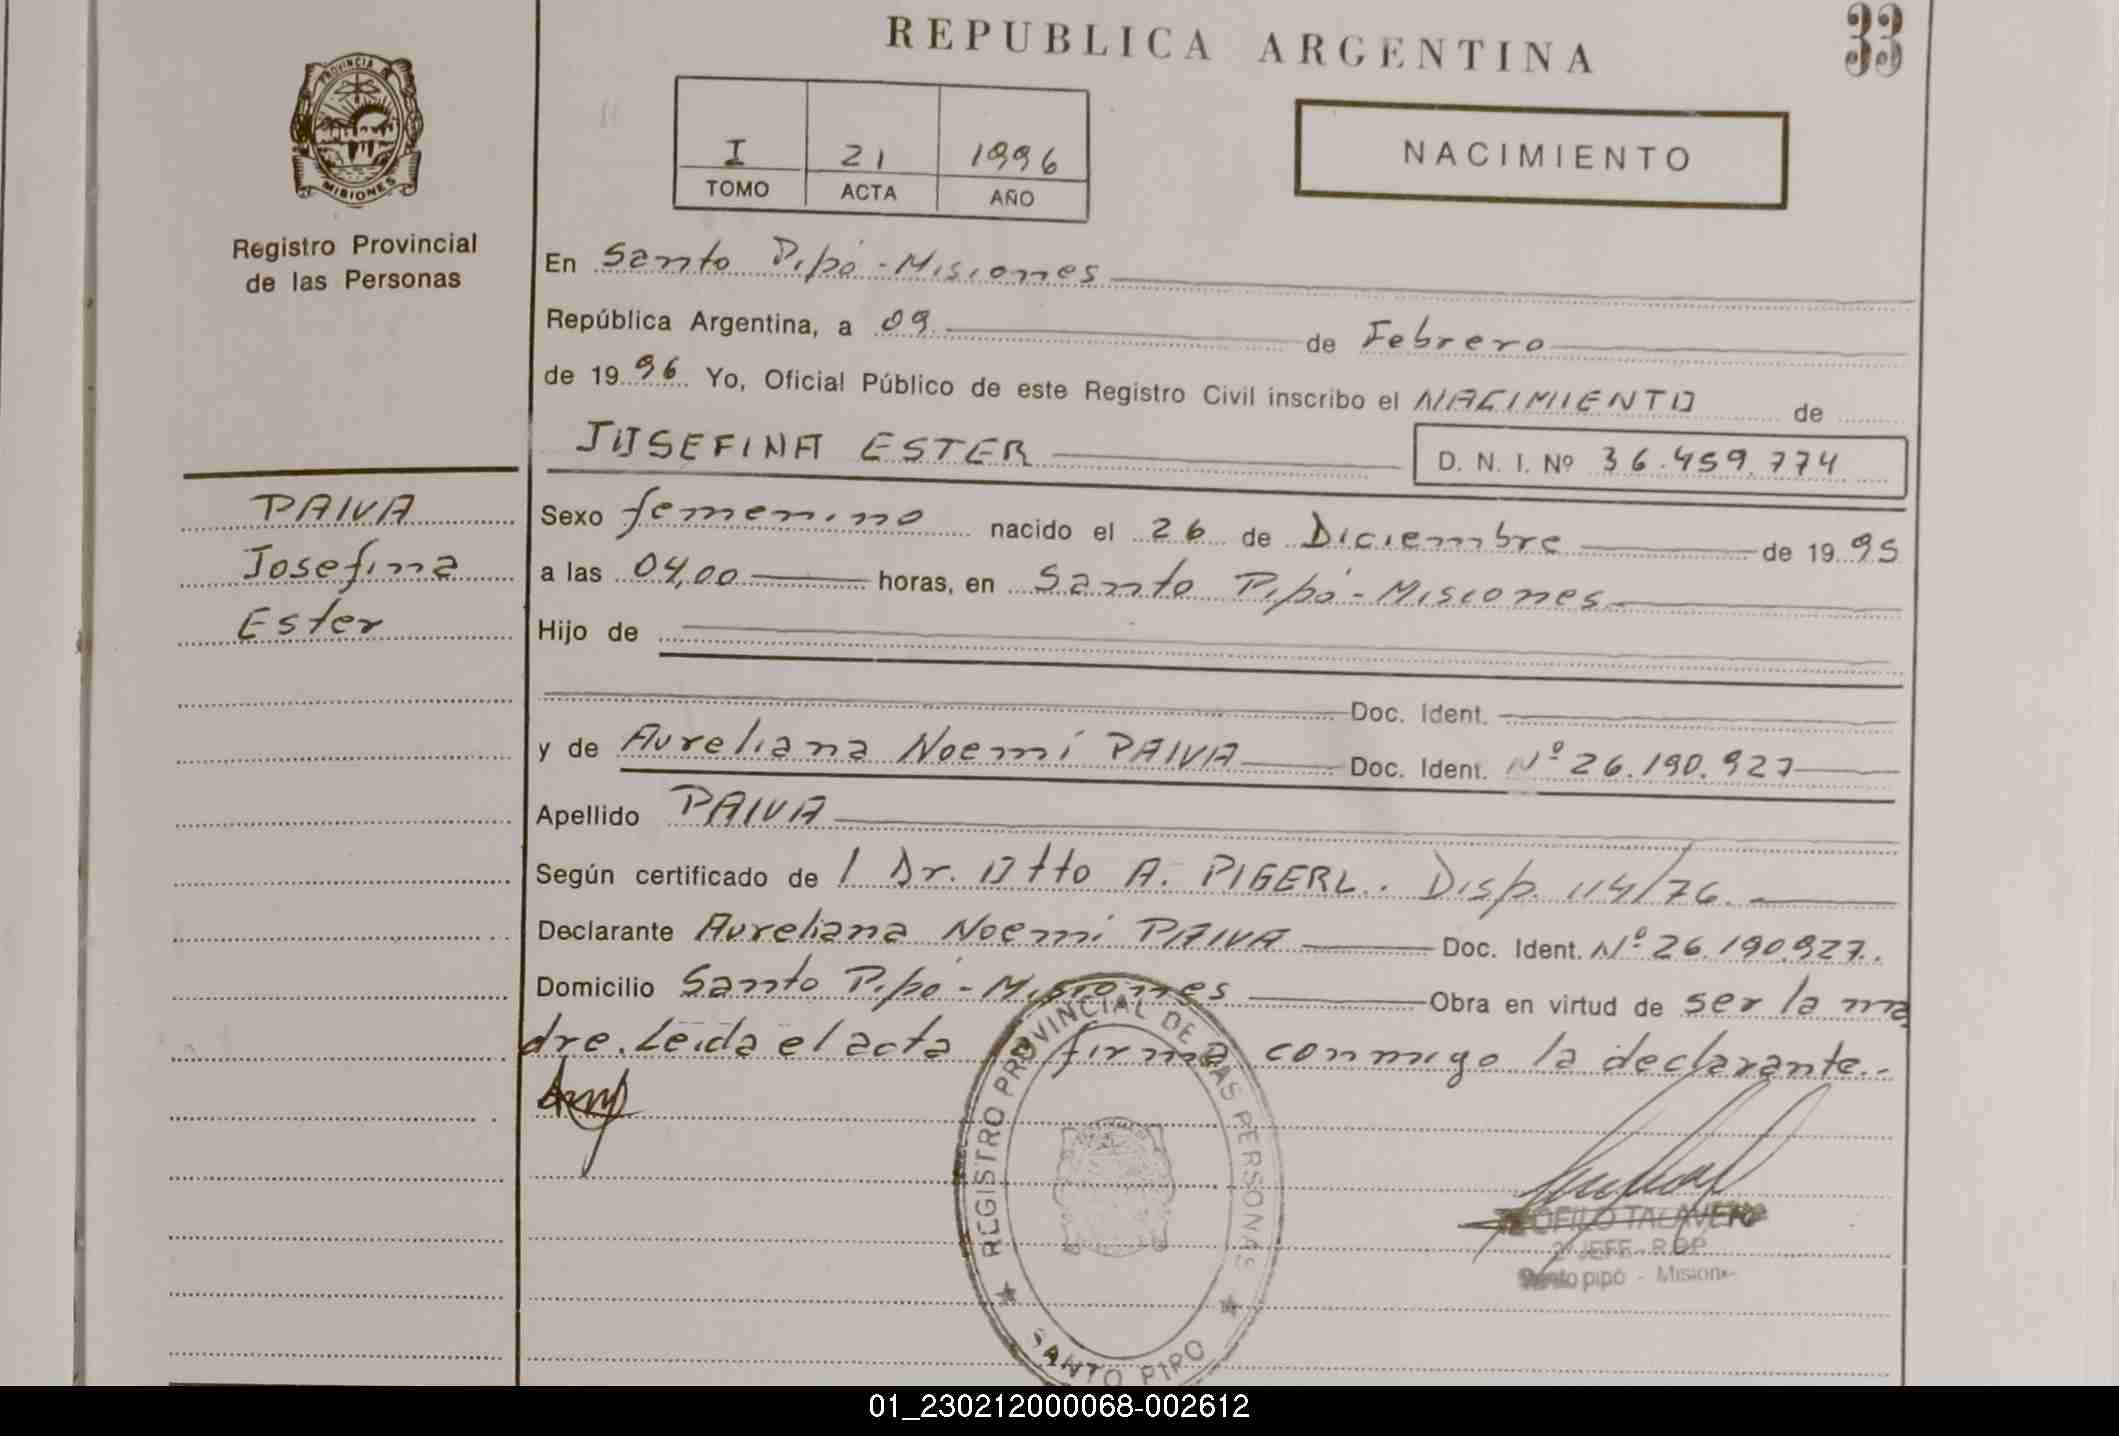 REPUBLICA ARGENTINA
33
PROVINCIA DE
MISIONES
Registro Provincial
de las Personas
I 21 1996
TOMO ACTA AÑO
NACIMIENTO
En Santo Pipó - Misiones
República Argentina, a 09 de Febrero
de 1996 Yo, Oficial Público de este Registro Civil inscribo el NACIMIENTO de
JOSEFINA ESTER D. N. I. Nº 36.459.774
PAIVA
Josefina
Ester
Sexo femenino nacido el 26 de Diciembre de 1995
a las 04,00 horas, en Santo Pipó - Misiones
Hijo de
Doc. Ident.
y de Aureliana Noemí PAIVA Doc. Ident. Nº 26.190.927
Apellido PAIVA
Según certificado de l Dr. Otto A. PIGERL. Disp. 114/76.
Declarante Aureliana Noemí PAIVA Doc. Ident. Nº 26.190.927.
Domicilio Santo Pipó - Misiones Obra en virtud de ser la ma
dre. Leída el acta firma conmigo la declarante.-
REGISTRO PROVINCIAL DE LAS PERSONAS
SANTO PIPO
TEOFILO TALAVERA
2º JEFE - R.P.P.
Santo pipó - Misiones
01_230212000068-002612